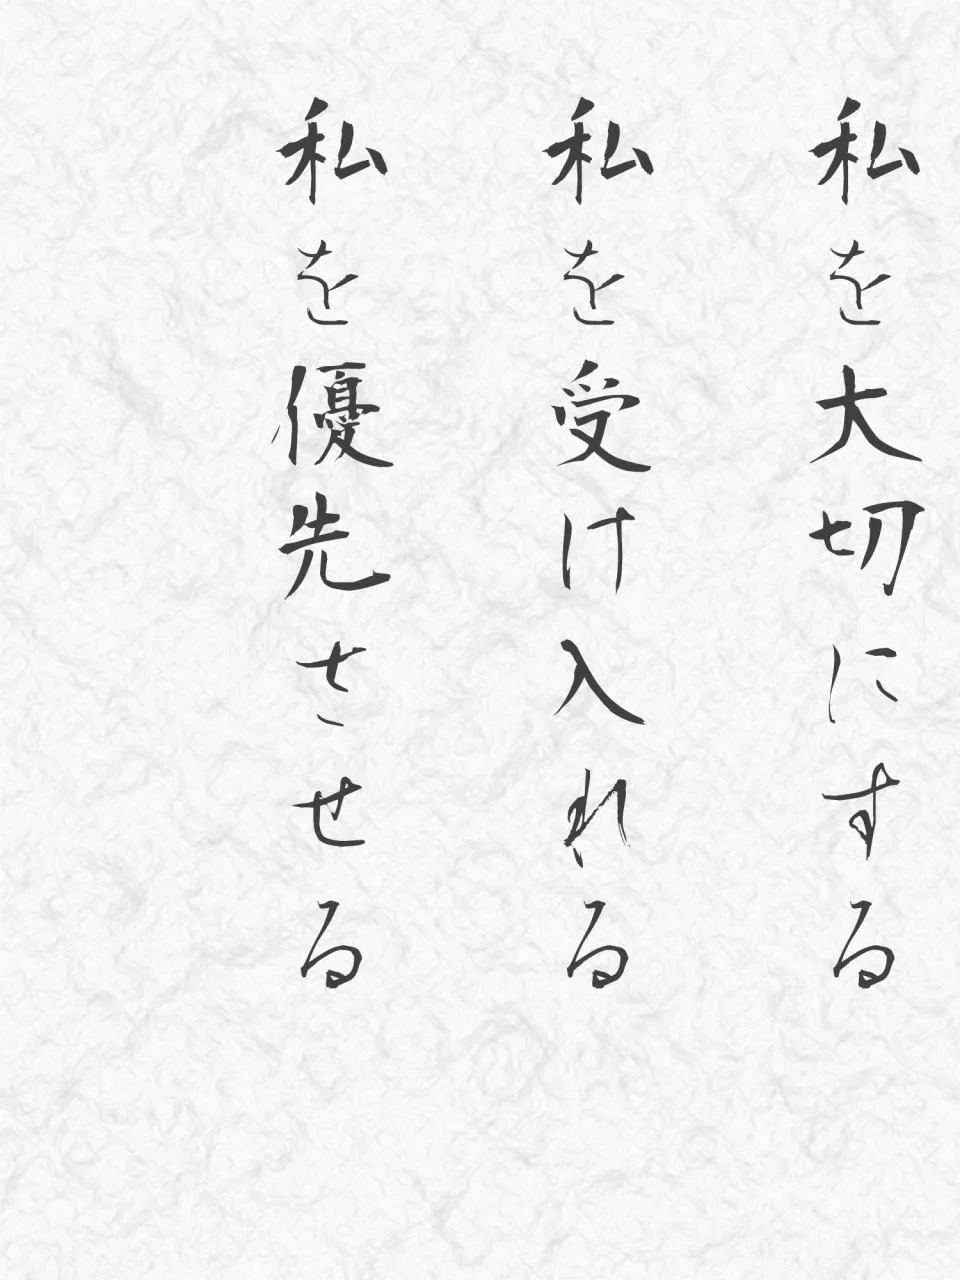 私を大切にする
私を受け入れる
私を優先させる